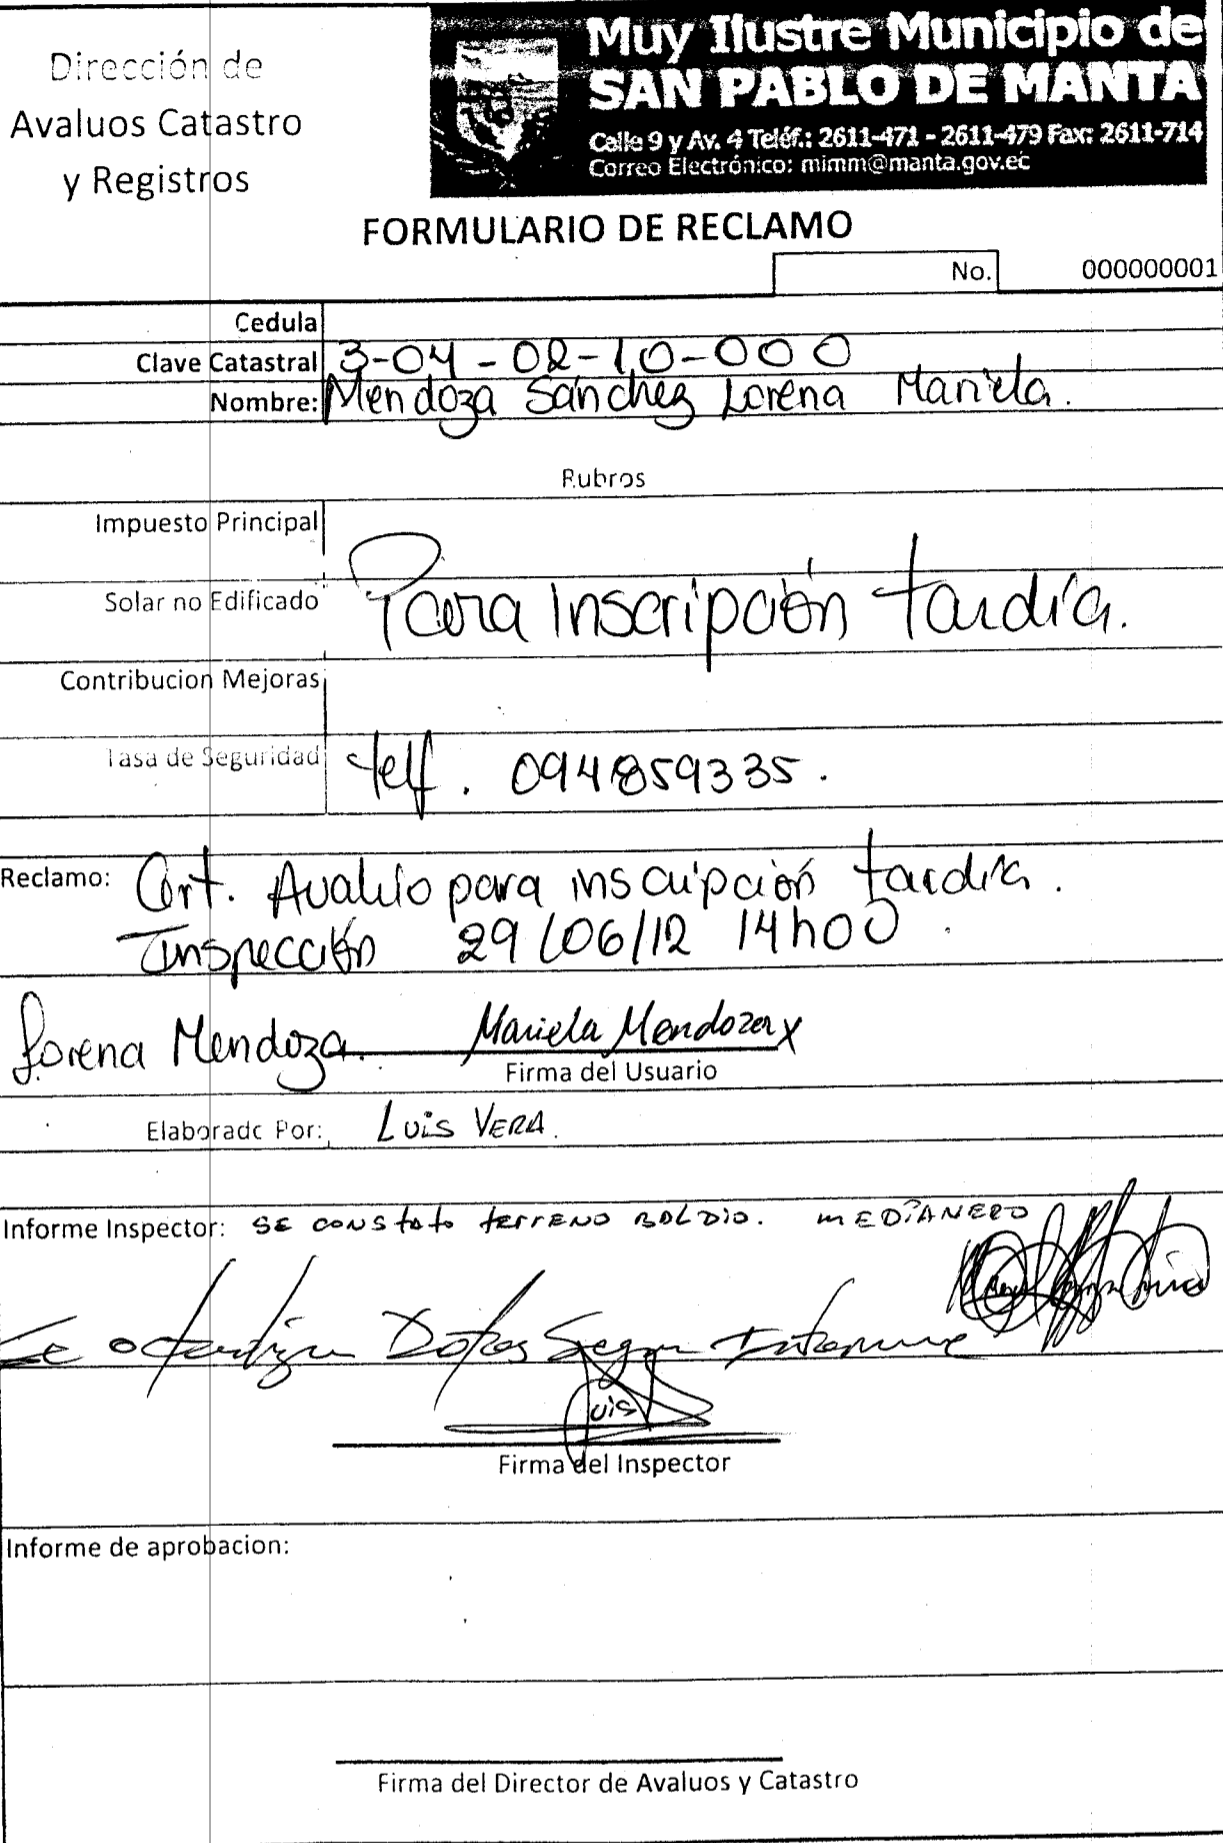 Dirección de
Avaluos Catastro
y Registros
Muy Ilustre Municipio de
SAN PABLO DE MANTA
Calle 9 y Av. 4 Teléf.: 2611-471 - 2611-479 Fax: 2611-714
Correo Electrónico: mimm@manta.gov.ec
FORMULARIO DE RECLAMO
No. 000000001
Cedula
Clave Catastral 3-04-02-10-000
Nombre: Mendoza Sánchez Lorena Mariela.
Rubros
Impuesto Principal
Solar no Edificado Para Inscripción tardía.
Contribucion Mejoras
Tasa de Seguridad telf. 094859335.
Reclamo: Cert. Avalúo para inscripción tardía.
Inspección 29/06/12 14h00.
Lorena Mendoza. Mariela Mendoza x
Firma del Usuario
Elaborado Por: Luis VERA.
Informe Inspector: SE CONStAto tERRENO BOLDIO. mEDiANERO
Se Datos Segun Informe
Luis
Firma del Inspector
Informe de aprobacion:
Firma del Director de Avaluos y Catastro